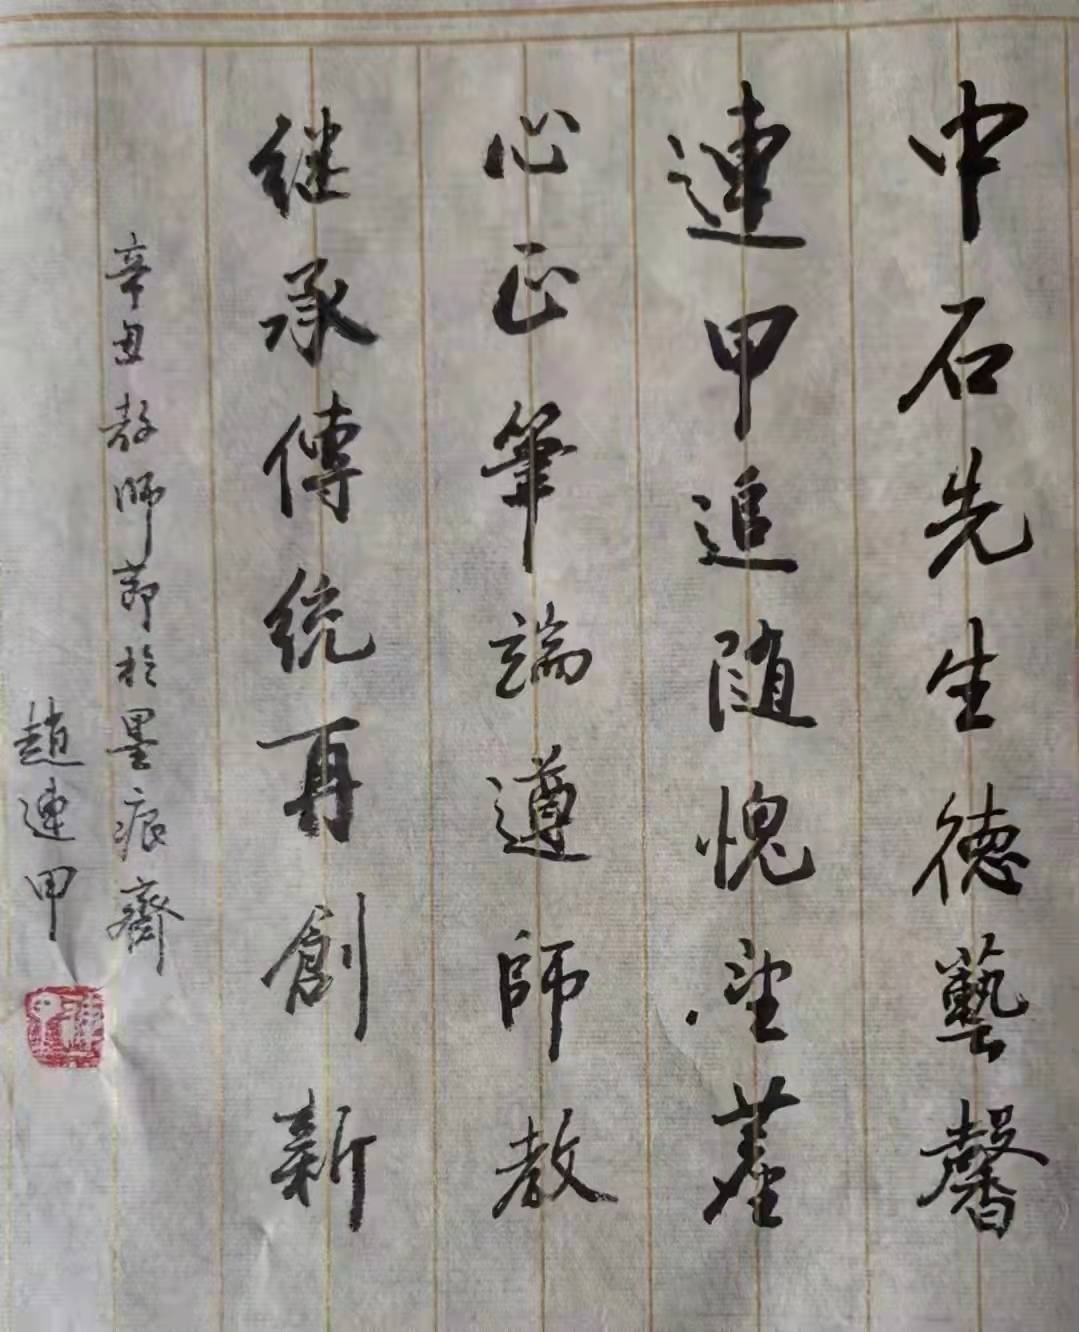 中石先生德藝馨
連甲追随愧望塵
心正筆端遵師教
继承傳統再創新
辛丑教師節於墨痕齋
趙連甲